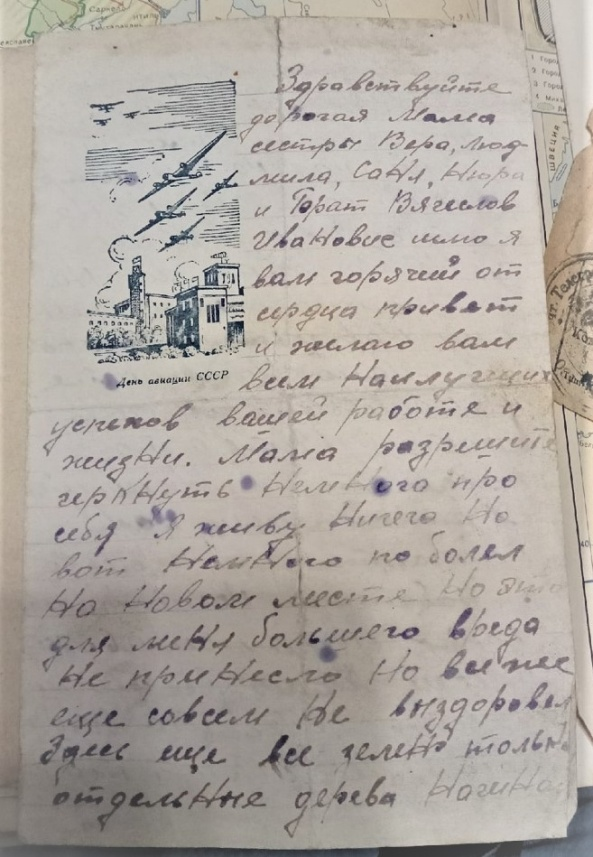 Здравствуйте
дорогая Мама
сестры Вера, Люд-
мила, Саня, Нюра
и брат Вячислов
Ивановис шлю я
вам горячий от
сердца привет
и желаю вам
День авиации СССР
всем наилучших
успехов вашей работе и
жизни. Мама разрешите
черкнуть немного про
себя я живу ничего но
вот немного по болел
на новом месте но это
для меня большего вреда
не принесло но все же
еще совсем не выздоровел
здесь еще все зелено только
отдельные дерева начина
Сарны
1 Горо
2 Горо
3 Горо
ШВЕЦИЯ